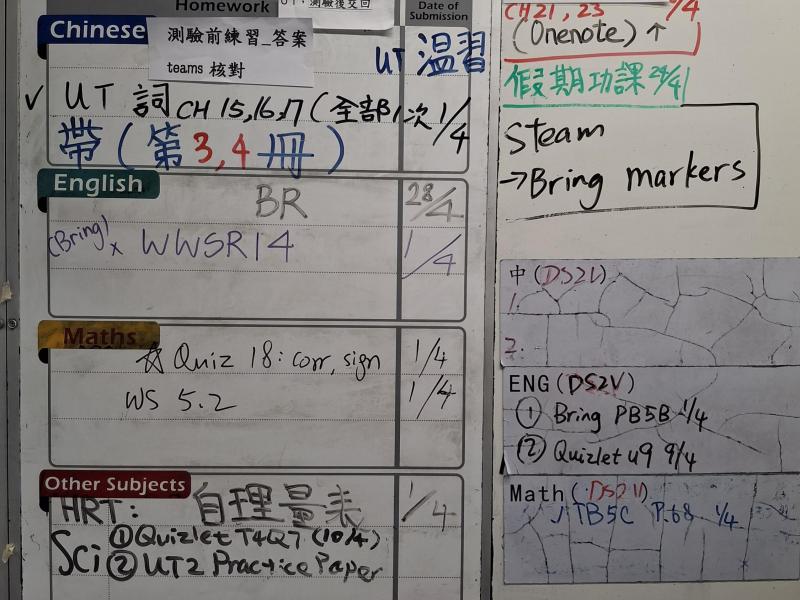 Homework
Date of
Submission
測驗後交回
Chinese
測驗前練習_答案
teams 核對
UT 温習
✓ UT 詞 CH 15,16,17 (全部1次 1/4
帶 (第3,4冊)
English
BR 28/4
(Bring) x WWSR14 1/4
Maths
☆ Quiz 18: corr, sign 1/4
WS 5.2 1/4
Other Subjects
HRT: 自理量表 1/4
Sci ① Quizlet T4Q7 (10/4)
② UT2 Practice Paper
CH21, 23 9/4
(Onenote) ↑
假期功課 29/4
Steam
→Bring markers
中(DS2V)
1.
2.
ENG (DS2V)
① Bring PB5B 1/4
② Quizlet u9 9/4
Math (DS2V)
TB5C P.68 1/4